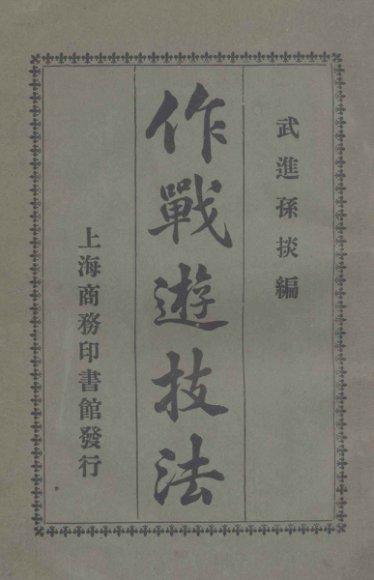 武進孫掞編
作戰遊技法
上海商務印書館發行